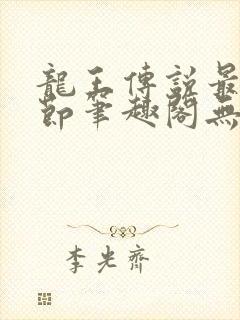 龍王傳說最
節筆趣閣無
李光齊